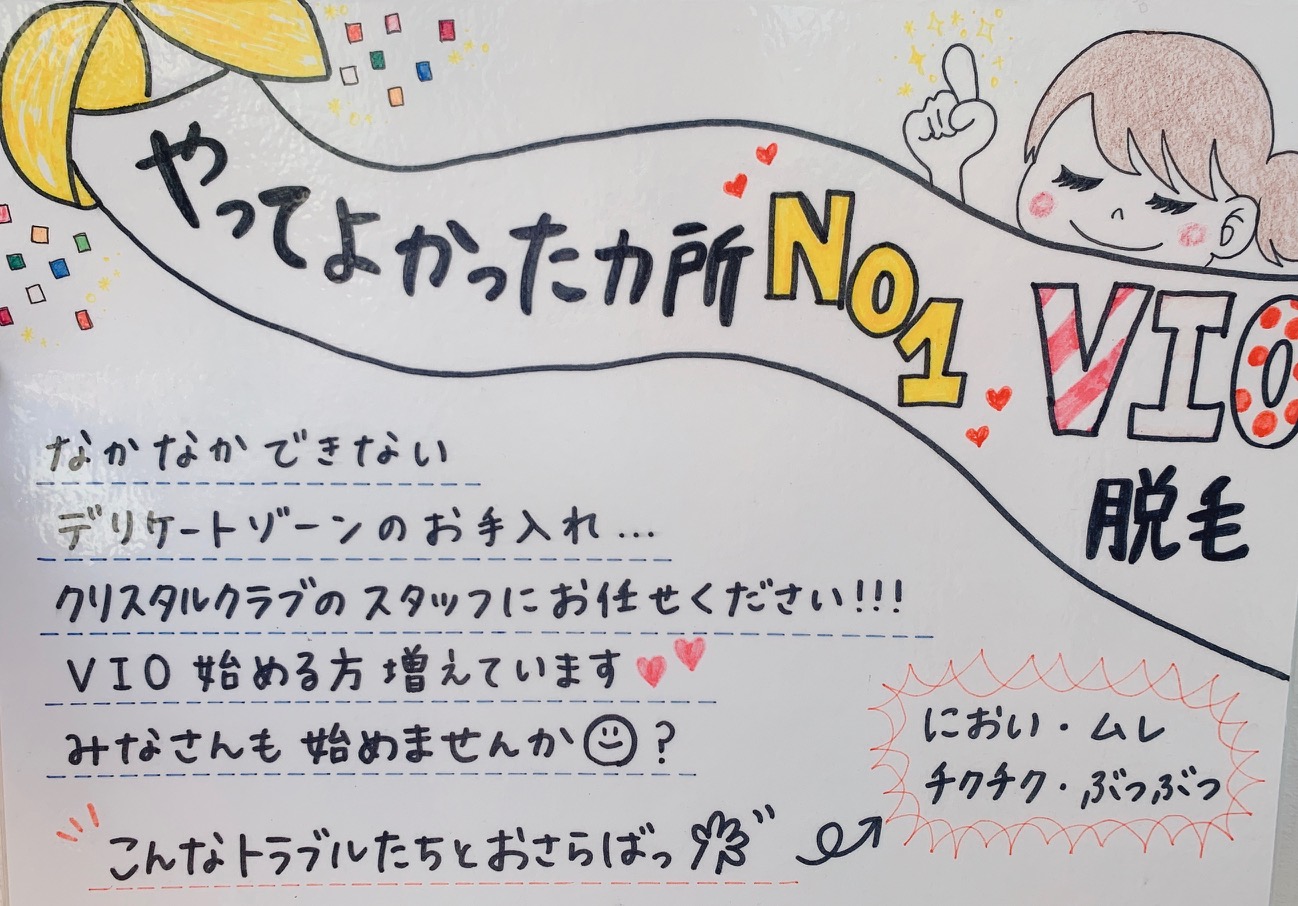 やってよかったカ所 No1
VIO
脱毛
なかなかできない
デリケートゾーンのお手入れ…
クリスタルクラブのスタッフにお任せください!!!
VIO 始める方 増えています
みなさんも 始めませんか?
こんなトラブルたちとおさらばっ
におい・ムレ
チクチク・ぶつぶつ